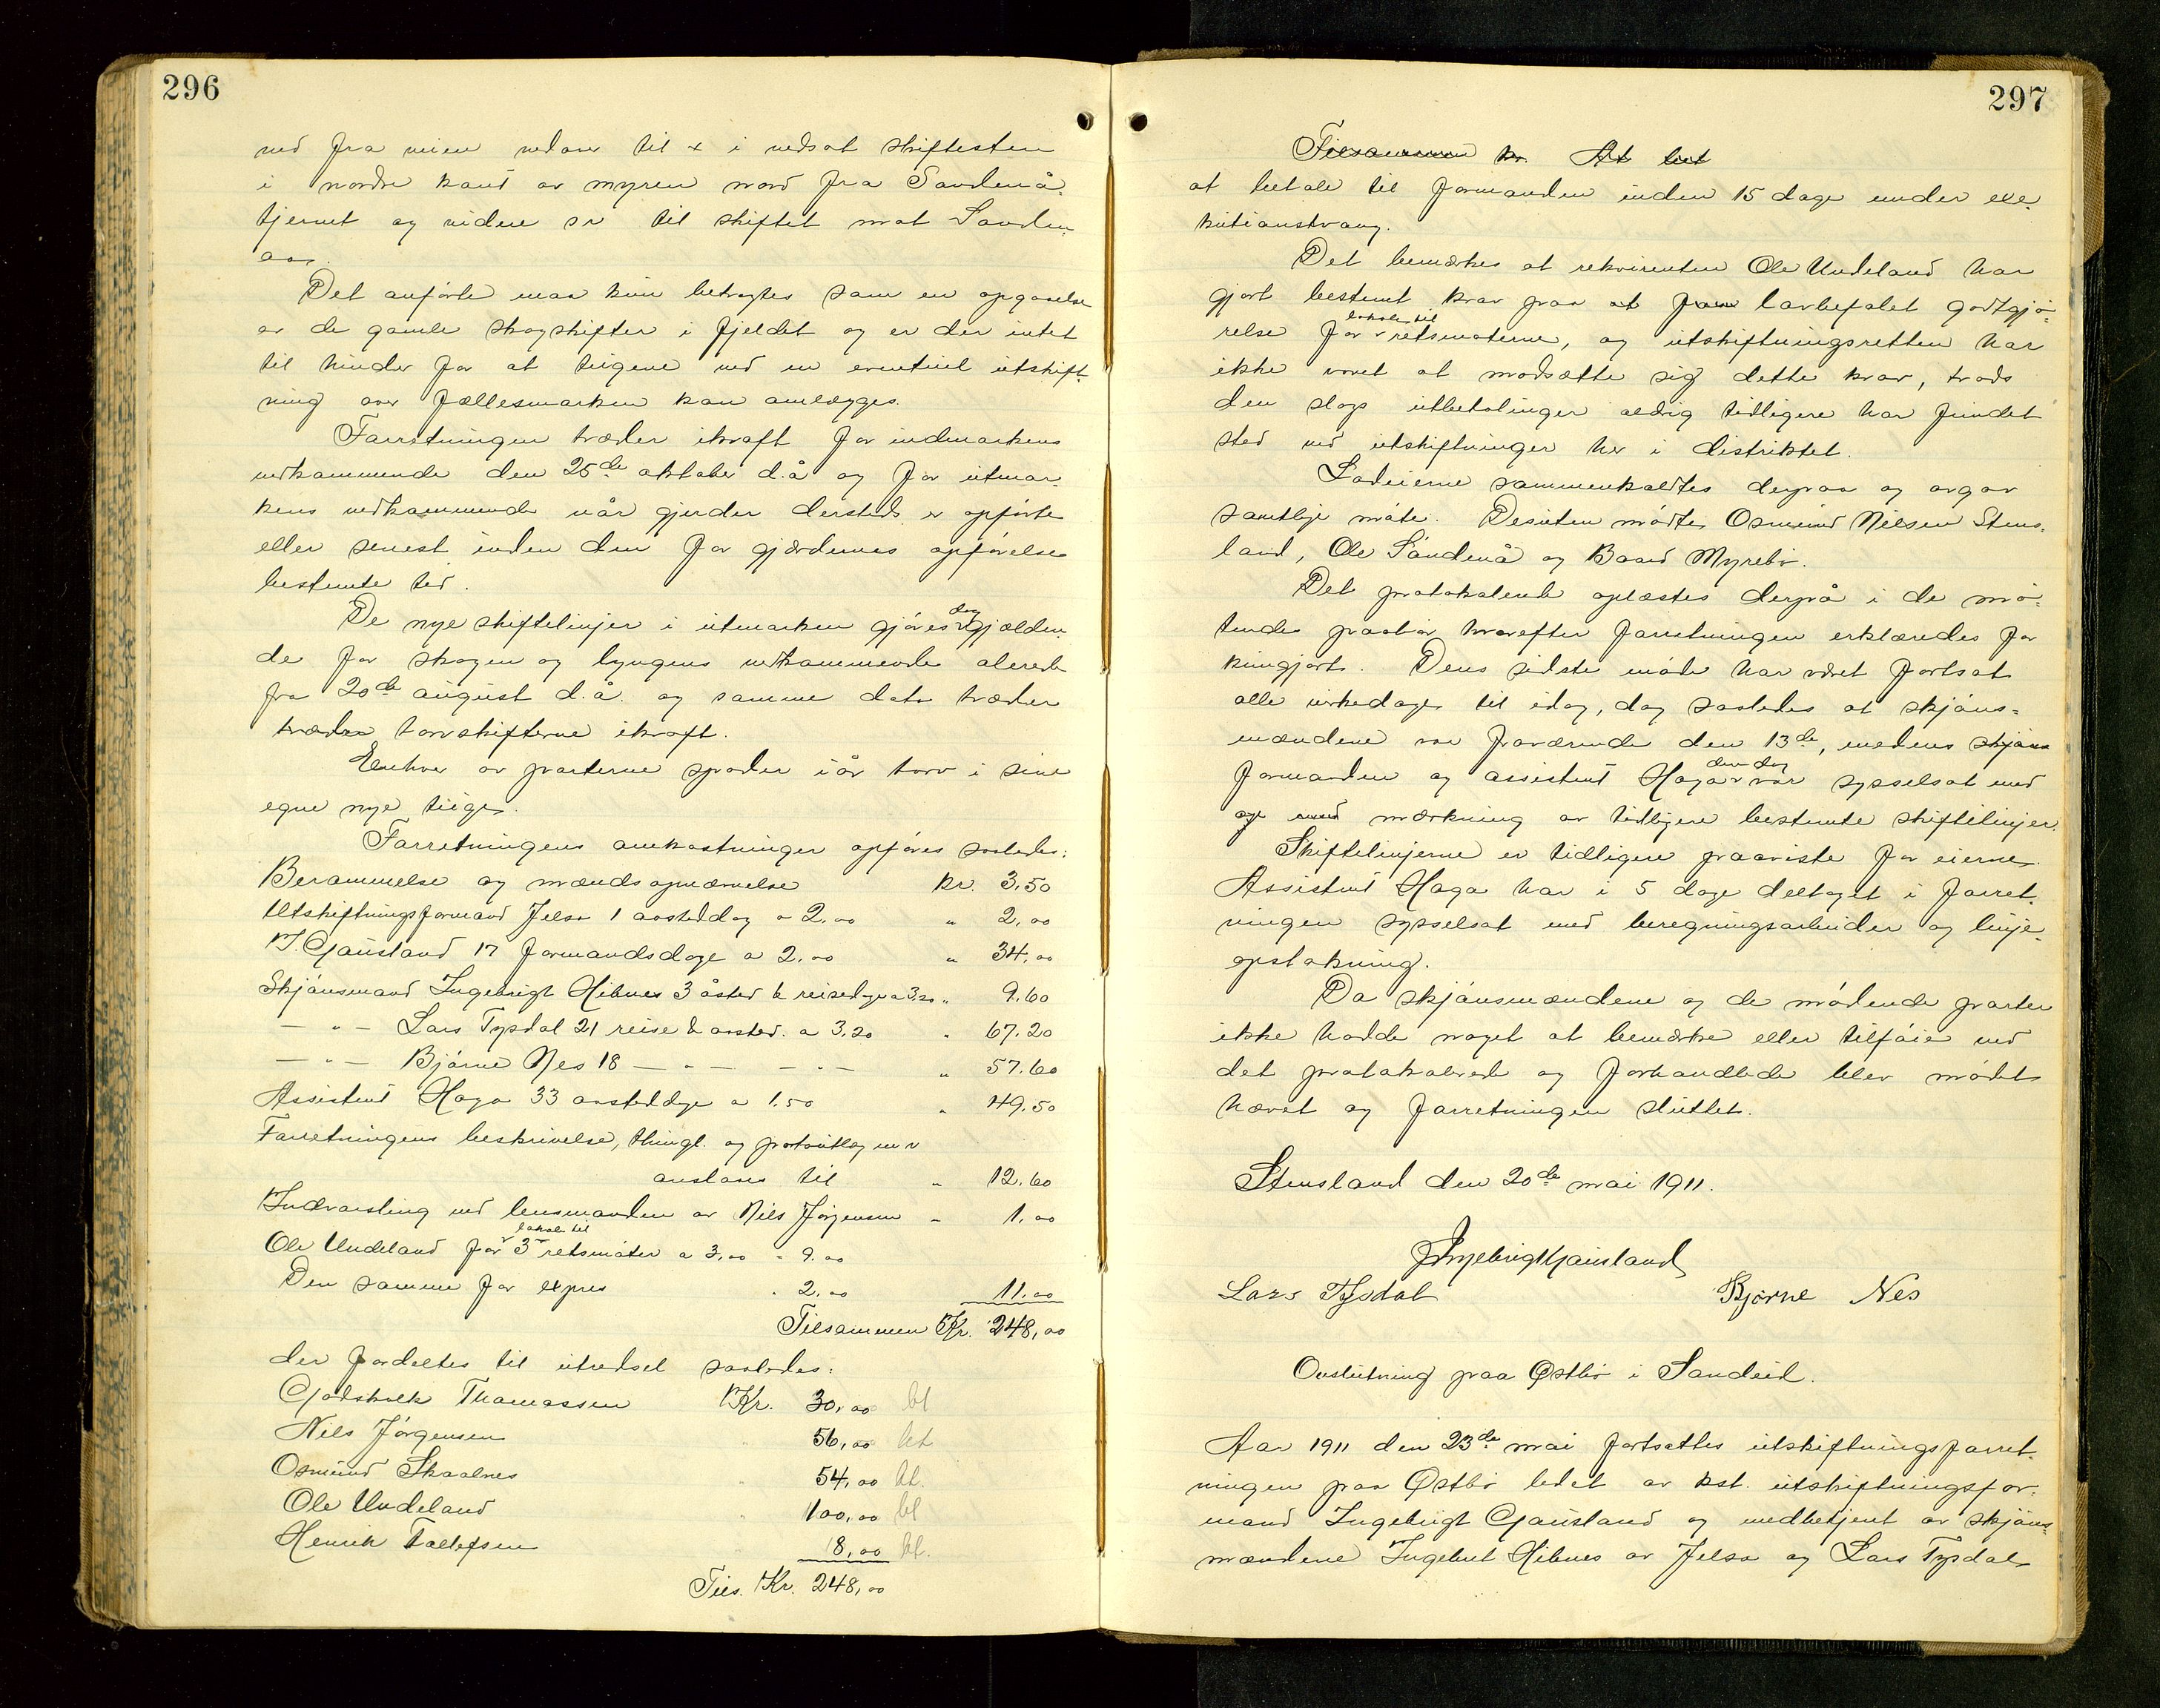 296
ned fra veien nedover til x i nedsat skiftesten
i nordre kant av myren nord fra Sandenå-
tjernet og videre sv til skiftet mot Sanden
aas.
Det anförte maa kun betragtes som en opgaaelse
av de gamle skogskifter i fjeldet og er der intet
til hinder for at teigene ved en eventuel utskift-
ning over fællesmarken kan omlægges.
Forretningen træder ikraft for indmarkens
vedkommende den 25de oktober d.å og for utmar-
kens vedkommende når gjerder dersteds er opförte
eller senest inden den for gjærdernes opförelse
bestemte tid.
De nye skiftelinjer i utmarken gjöres dog gjælden-
de for skogen og lyngens vedkommende allerede
fra 20de august d.å. og samme dato træder
trædes torvskifterne ikraft.
Enhver av parterne spader iår torv i sine
egne nye teiger.
Forretningens omkostninger opföres saaledes:
Berammelse og mændsopnævnelse kr. 3,50
Utskiftningsformand Jelsa 1 aasteddag a 2.00 " 2,00
I. Gausland 17 formandsdage a 2.00 " 34,00
Skjönsmand Ingebrigt Hibnes 3 åsted & reisedage a 3.20 " 9.60
— " — Lars Tysdal 21 reise & aasted. a 3,20 " 67.20
— " — Bjårne Nes 18 — " — — " — " 57.60
Assistent Haga 33 aasteddage a 1.50 " 49.50
Forretningens beskrivelse, thingl. og portoutlæg m v
anslaaes til " 12.60
Indvarsling ved lensmanden av Nils Jörgensen " 1.00
Ole Undeland for 3 lokale til retsmöter a 3,00 " 9.00
Den samme for expres " 2.00 11.00
Tilsammen Kr. 248,00
der fordeltes til utredsel saaledes:
Godskalk Thomassen Kr. 30,00 bt
Nils Jörgensen " 56,00 bt
Osmund Skaalnes " 54,00 bt.
Ole Undeland " 100,00 bt
Henrik Tollefsen 18,00 bt.
Tils. Kr. 248,00
297
Tilsammen kr At bet
at betale til formanden inden 15 dage under exe-
kutionstvang.
Det bemærkes at rekvirenten Ole Undeland har
gjort bestemt krav paa at faa lovbefalet godtgjö-
relse for lokale til retsmöterne, og utskiftningsretten har
ikke vovet at modsætte sig dette krav, trods
den slags utbetalinger aldrig tidligere har fundet
sted ved utskiftninger her i distriktet.
Lodeierne sammenkaldtes derpaa og avgav
samtlige möte. Desuten mödte Osmund Nilsen Stens-
land, Ole Sandenå og Baard Myrebö.
Det protokolerede oplæstes derpå i de mö-
tendes paahör hvorefter forretningen erklæredes for
kundgjort. Dens sidste möte har været fortsat
alle virkedage til idag, dog saaledes at skjöns-
mændene var fraværende den 13de, medens skjöns
formanden og assistent Haga den dag var sysselsat med
og med mærkning av tidligere bestemte skiftelinjer.
Skiftelinjerne er tidligere paaviste for eierne.
Assistent Haga har i 5 dage deltaget i forret-
ningen sysselsat med beregningsarbeider og linje-
opstakning.
Da skjönsmændene og de mödende parter
ikke hadde noget at bemærke eller tilföie ved
det protokolerede og forhandlede blev mödet
hævet og forretningen sluttet.
Stensland den 20de mai 1911.
Ingebrigt Gausland
Lars Tysdal Bjarne Nes
Ouslutning paa Østbö i Sandeid.
Aar 1911 den 23de mai fortsattes utskiftningsforret-
ningen paa Østbö ledet av kst. utskiftningsfor-
mand Ingebrigt Gausland og medbetjent av skjöns-
mændene Ingebret Hibnes av Jelsa og Lars Tysdal